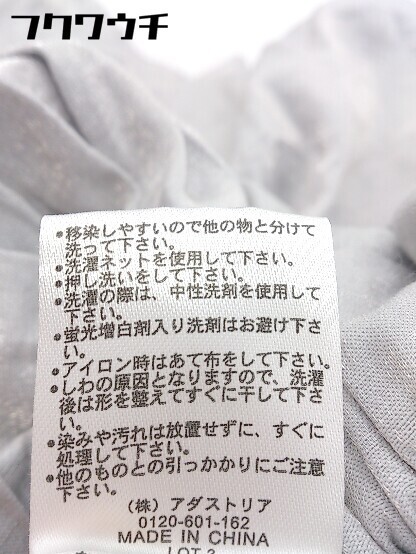 フクワウチ
•移染しやすいので他の物と分けて
洗って下さい。
•洗濯ネットを使用して下さい。
•押し洗いをして下さい。
•洗濯の際は、中性洗剤を使用して
下さい。
•蛍光増白剤入り洗剤はお避け下さ
い。
•アイロン時はあて布をして下さい。
•しわの原因となりますので、洗濯
後は形を整えてすぐに干して下さ
い。
•染みや汚れは放置せずに、すぐに
処理して下さい。
•他のものとの引っかかりにご注意
下さい。
(株) アダストリア
0120-601-162
MADE IN CHINA
LOT 2